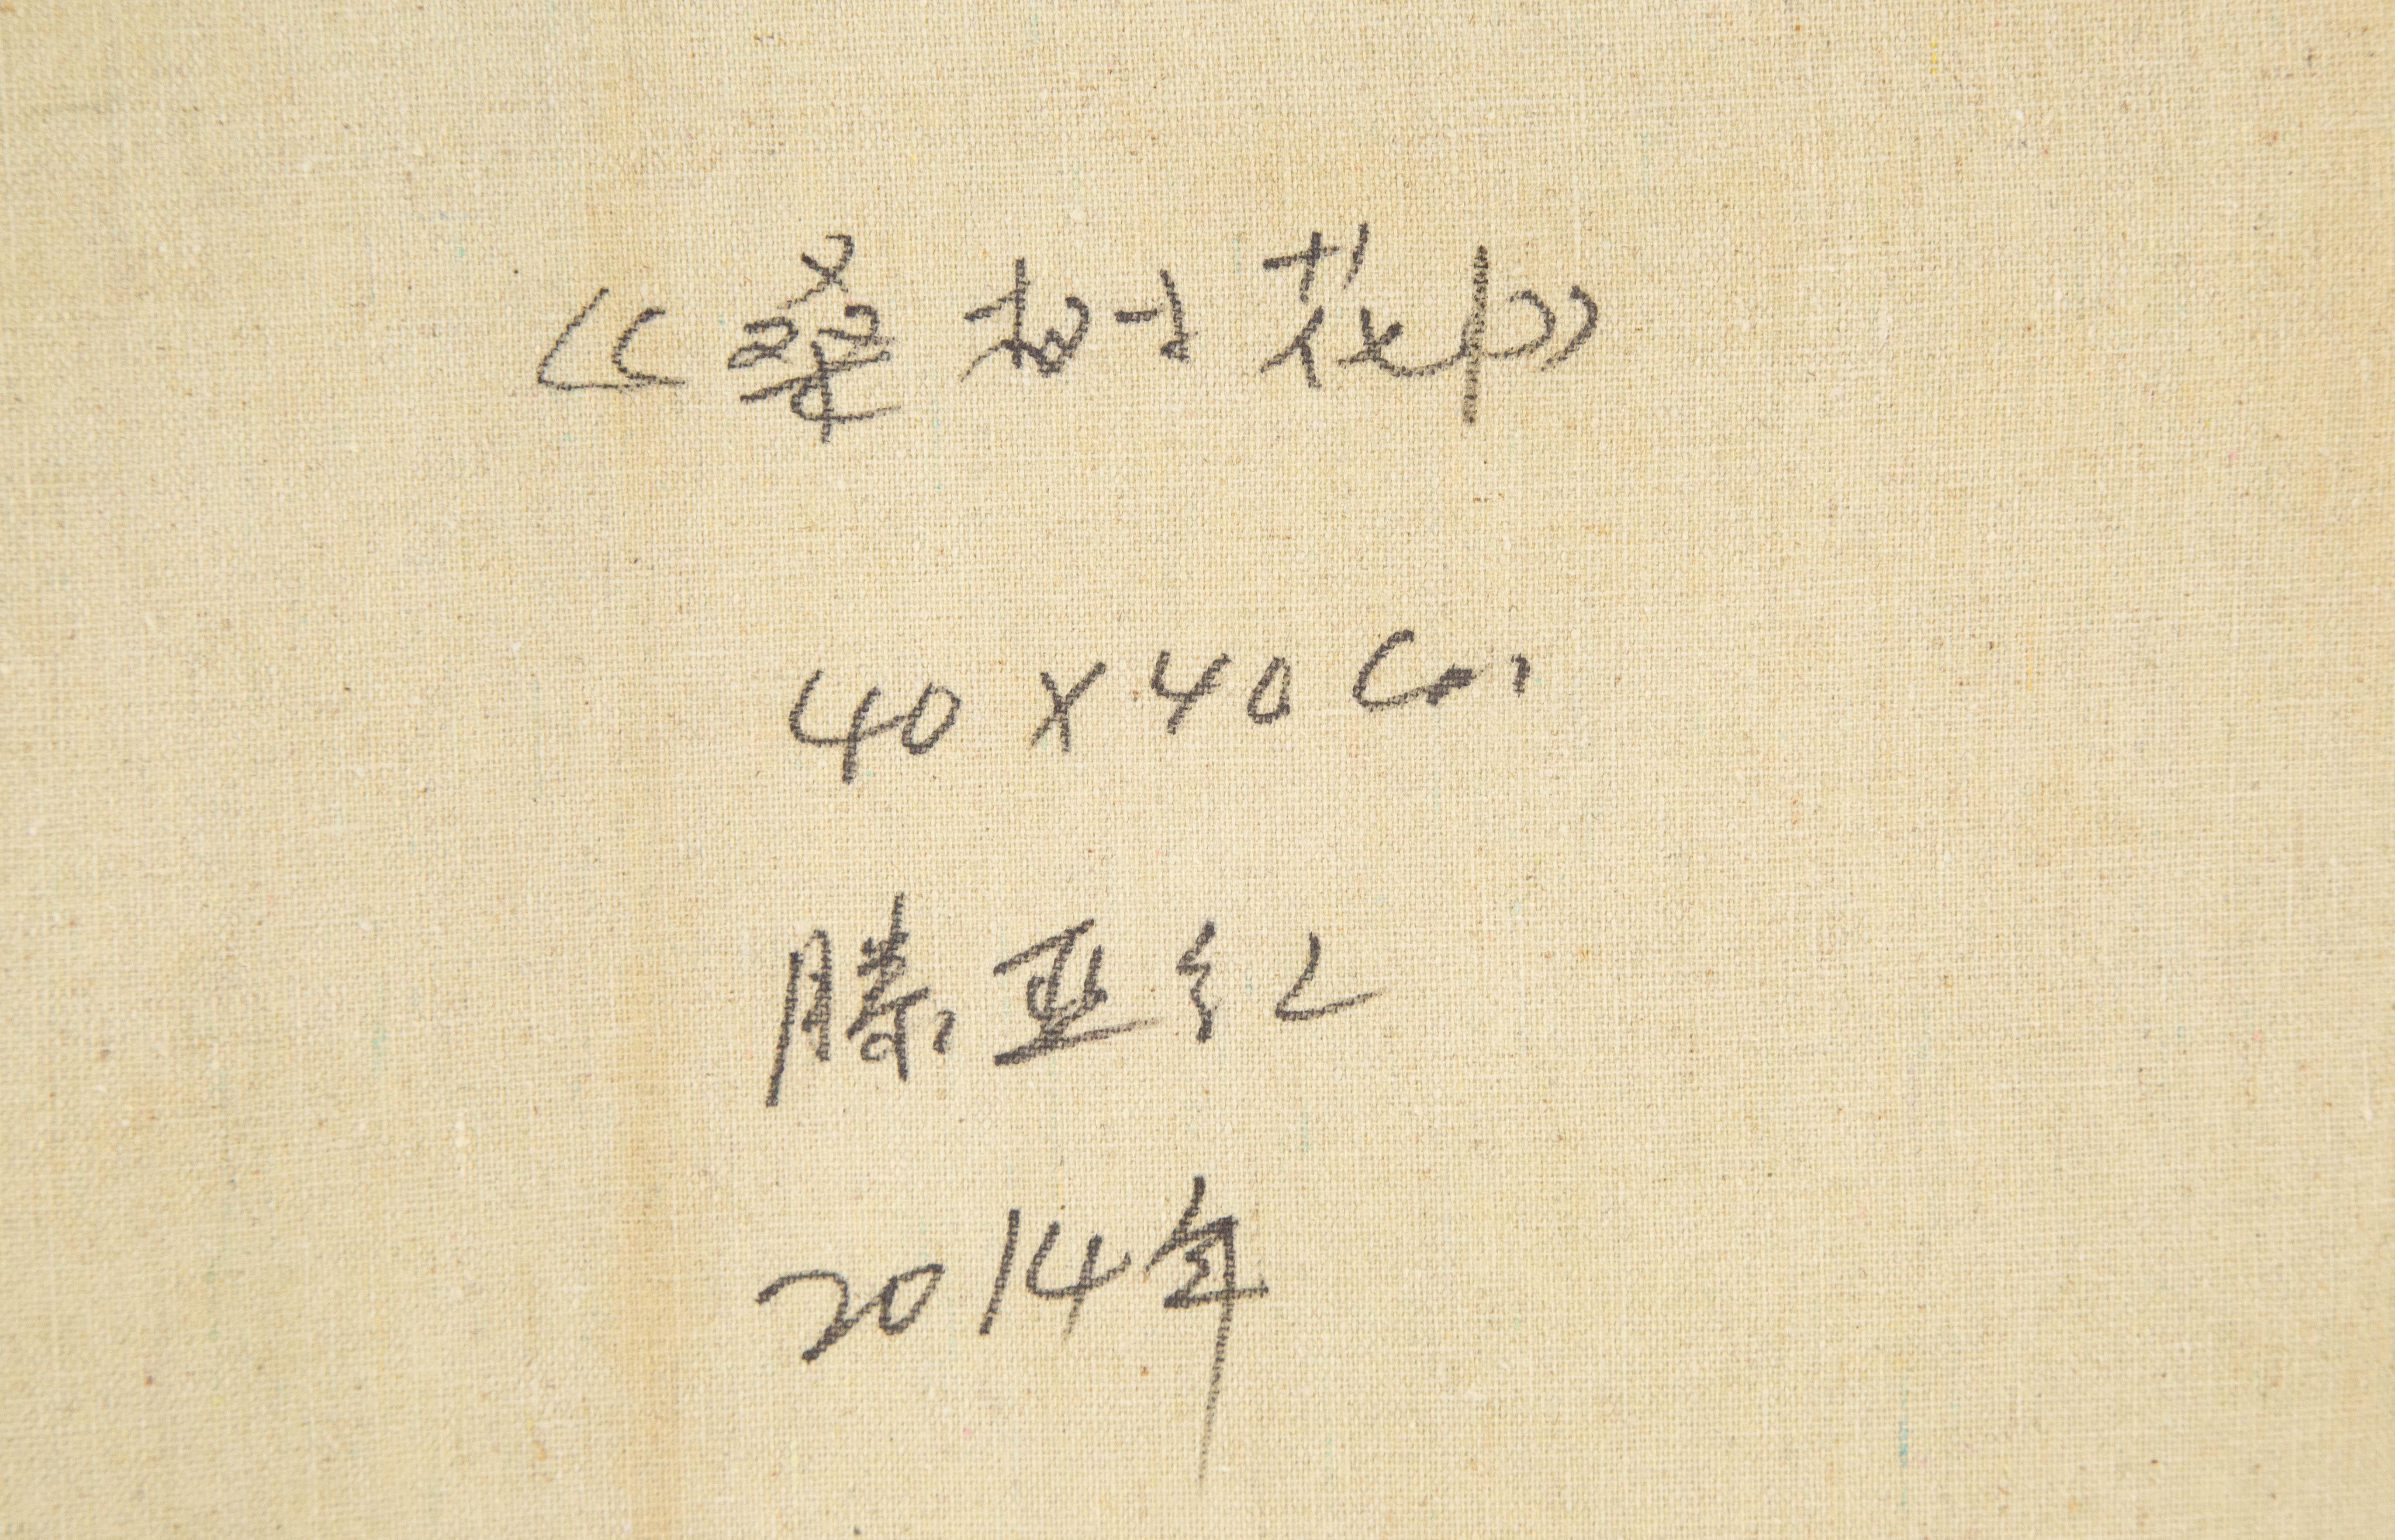 《桑树花中》
40×40cm
滕亚红
2014年